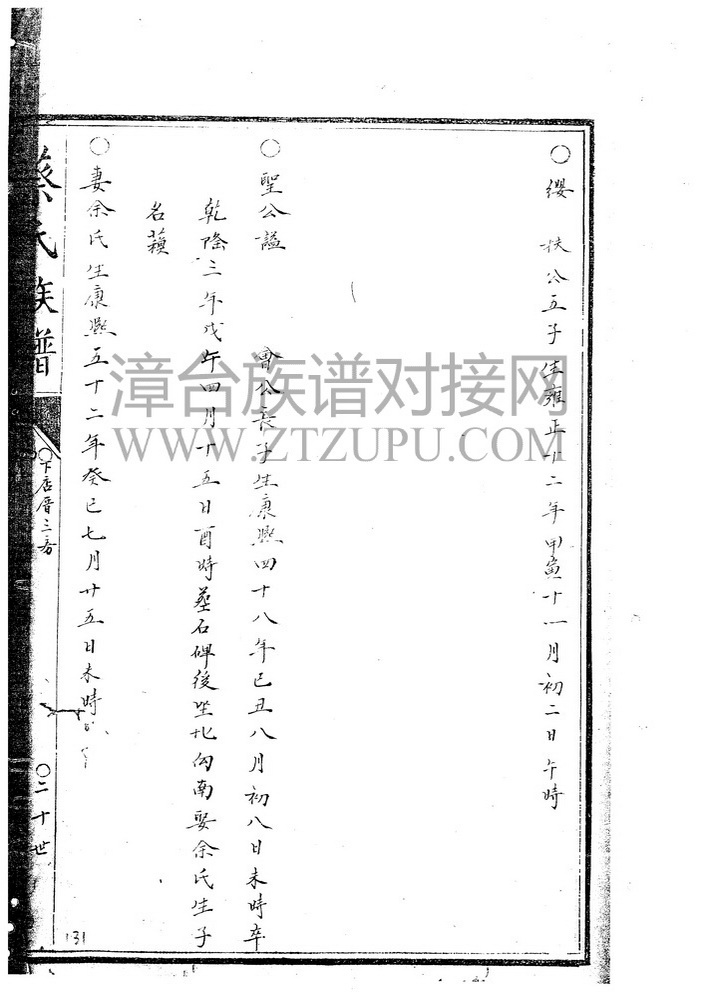 〇纓 扶公五子生雍正十二年甲寅十一月初二日午時
〇聖公諡 會公長子生康熙四十八年己丑八月初八日未時卒
乾隆三年戊午四月十五日酉時墓石碑後坐北向南娶余氏生子
名蘋
〇妻余氏生康熙五十二年癸巳七月廿五日未時
蔡氏族譜
〇下店厝三房
〇二十世
131
漳台族谱对接网
WWW.ZTZUPU.COM